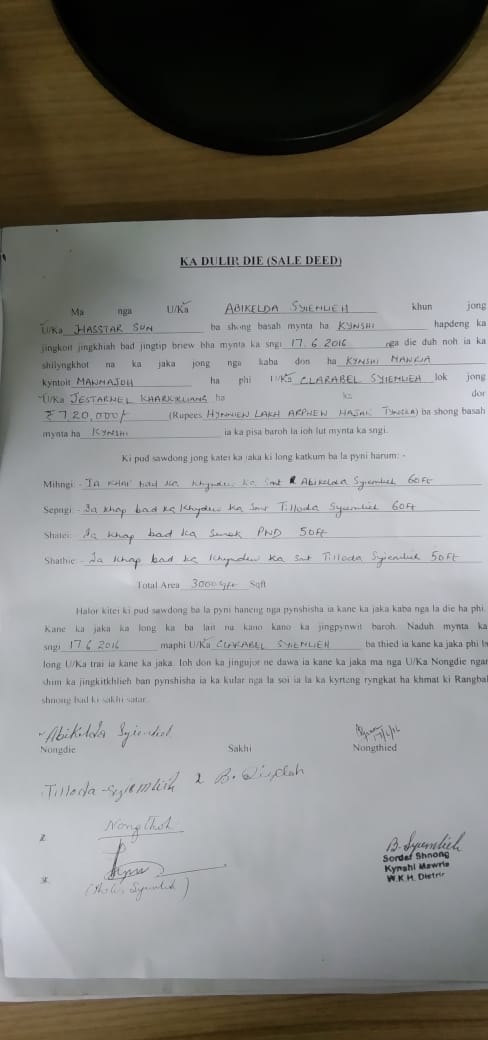 KA DULIR DIE (SALE DEED)
Ma nga U/Ka ABIKELDA SYIEMLIEH khun jong
U/Ka HASSTAR SUN ba shong basah mynta ha KYNSHI hapdeng ka
jingkoit jingkhiah bad jingtip briew bha mynta ka sngi 17.6.2016 nga die duh noh ia ka
shilyngkhot na ka jaka jong nga kaba don ha KYNSHI MAWRIA
kyntoit MAWMAJOH ha phi U/Ka CLARABEL SYIEMLIEH lok jong
U/Ka JESTARWEL KHARKYLLIANG ha ka dor
₹ 720,000/- (Rupees HYNNIEW LAKH ARPHEW HAJAI TYNGKA) ba shong basah
mynta ha KYNSHI ia ka pisa baroh la ioh lut mynta ka sngi.
Ki pud sawdong jong katei ka jaka ki long katkum ba la pyni harum: -
Mihngi:- Ia khap bad ka khyndew ka Smt Abikelda Syiemlieh 60 Ft
Sepngi:- Ia khap bad ka Khyndew ka Smt Tilloda Syiemlieh 60 Ft
Shatei:- Ia khap bad ka Surok PWD 50 Ft
Shathie:- Ia khap bad ka Khyndew ka Smt Tilloda Syiemlieh 50 Ft
Total Area 3000 Sqft
Halor kitei ki pud sawdong ba la pyni haneng nga pynshisha ia kane ka jaka kaba nga la die ha phi.
Kane ka jaka ka long ka ba lait na kano kano ka jingpynwit baroh. Naduh mynta ka
sngi 17.6.2016 maphi U/Ka CLARABEL SYIEMLIEH ba thied ia kane ka jaka phi la
long U/Ka trai ia kane ka jaka. Ioh don ka jingujor ne dawa ia kane ka jaka ma nga U/Ka Nongdie ngan
shim ka jingkitkhlieh ban pynshisha ia ka kular nga la soi ia la ka kyrteng ryngkat ha khmat ki Rangbah
shnong bad ki sakhi satar.
Abikelda Syiemlieh 17/6/16
Nongdie Sakhi Nongthied
Tilloda Syiemlieh
Nongthoh
B. Syiemlieh
Sordar Shnong
Kynshi Mawria
W.K.H. District